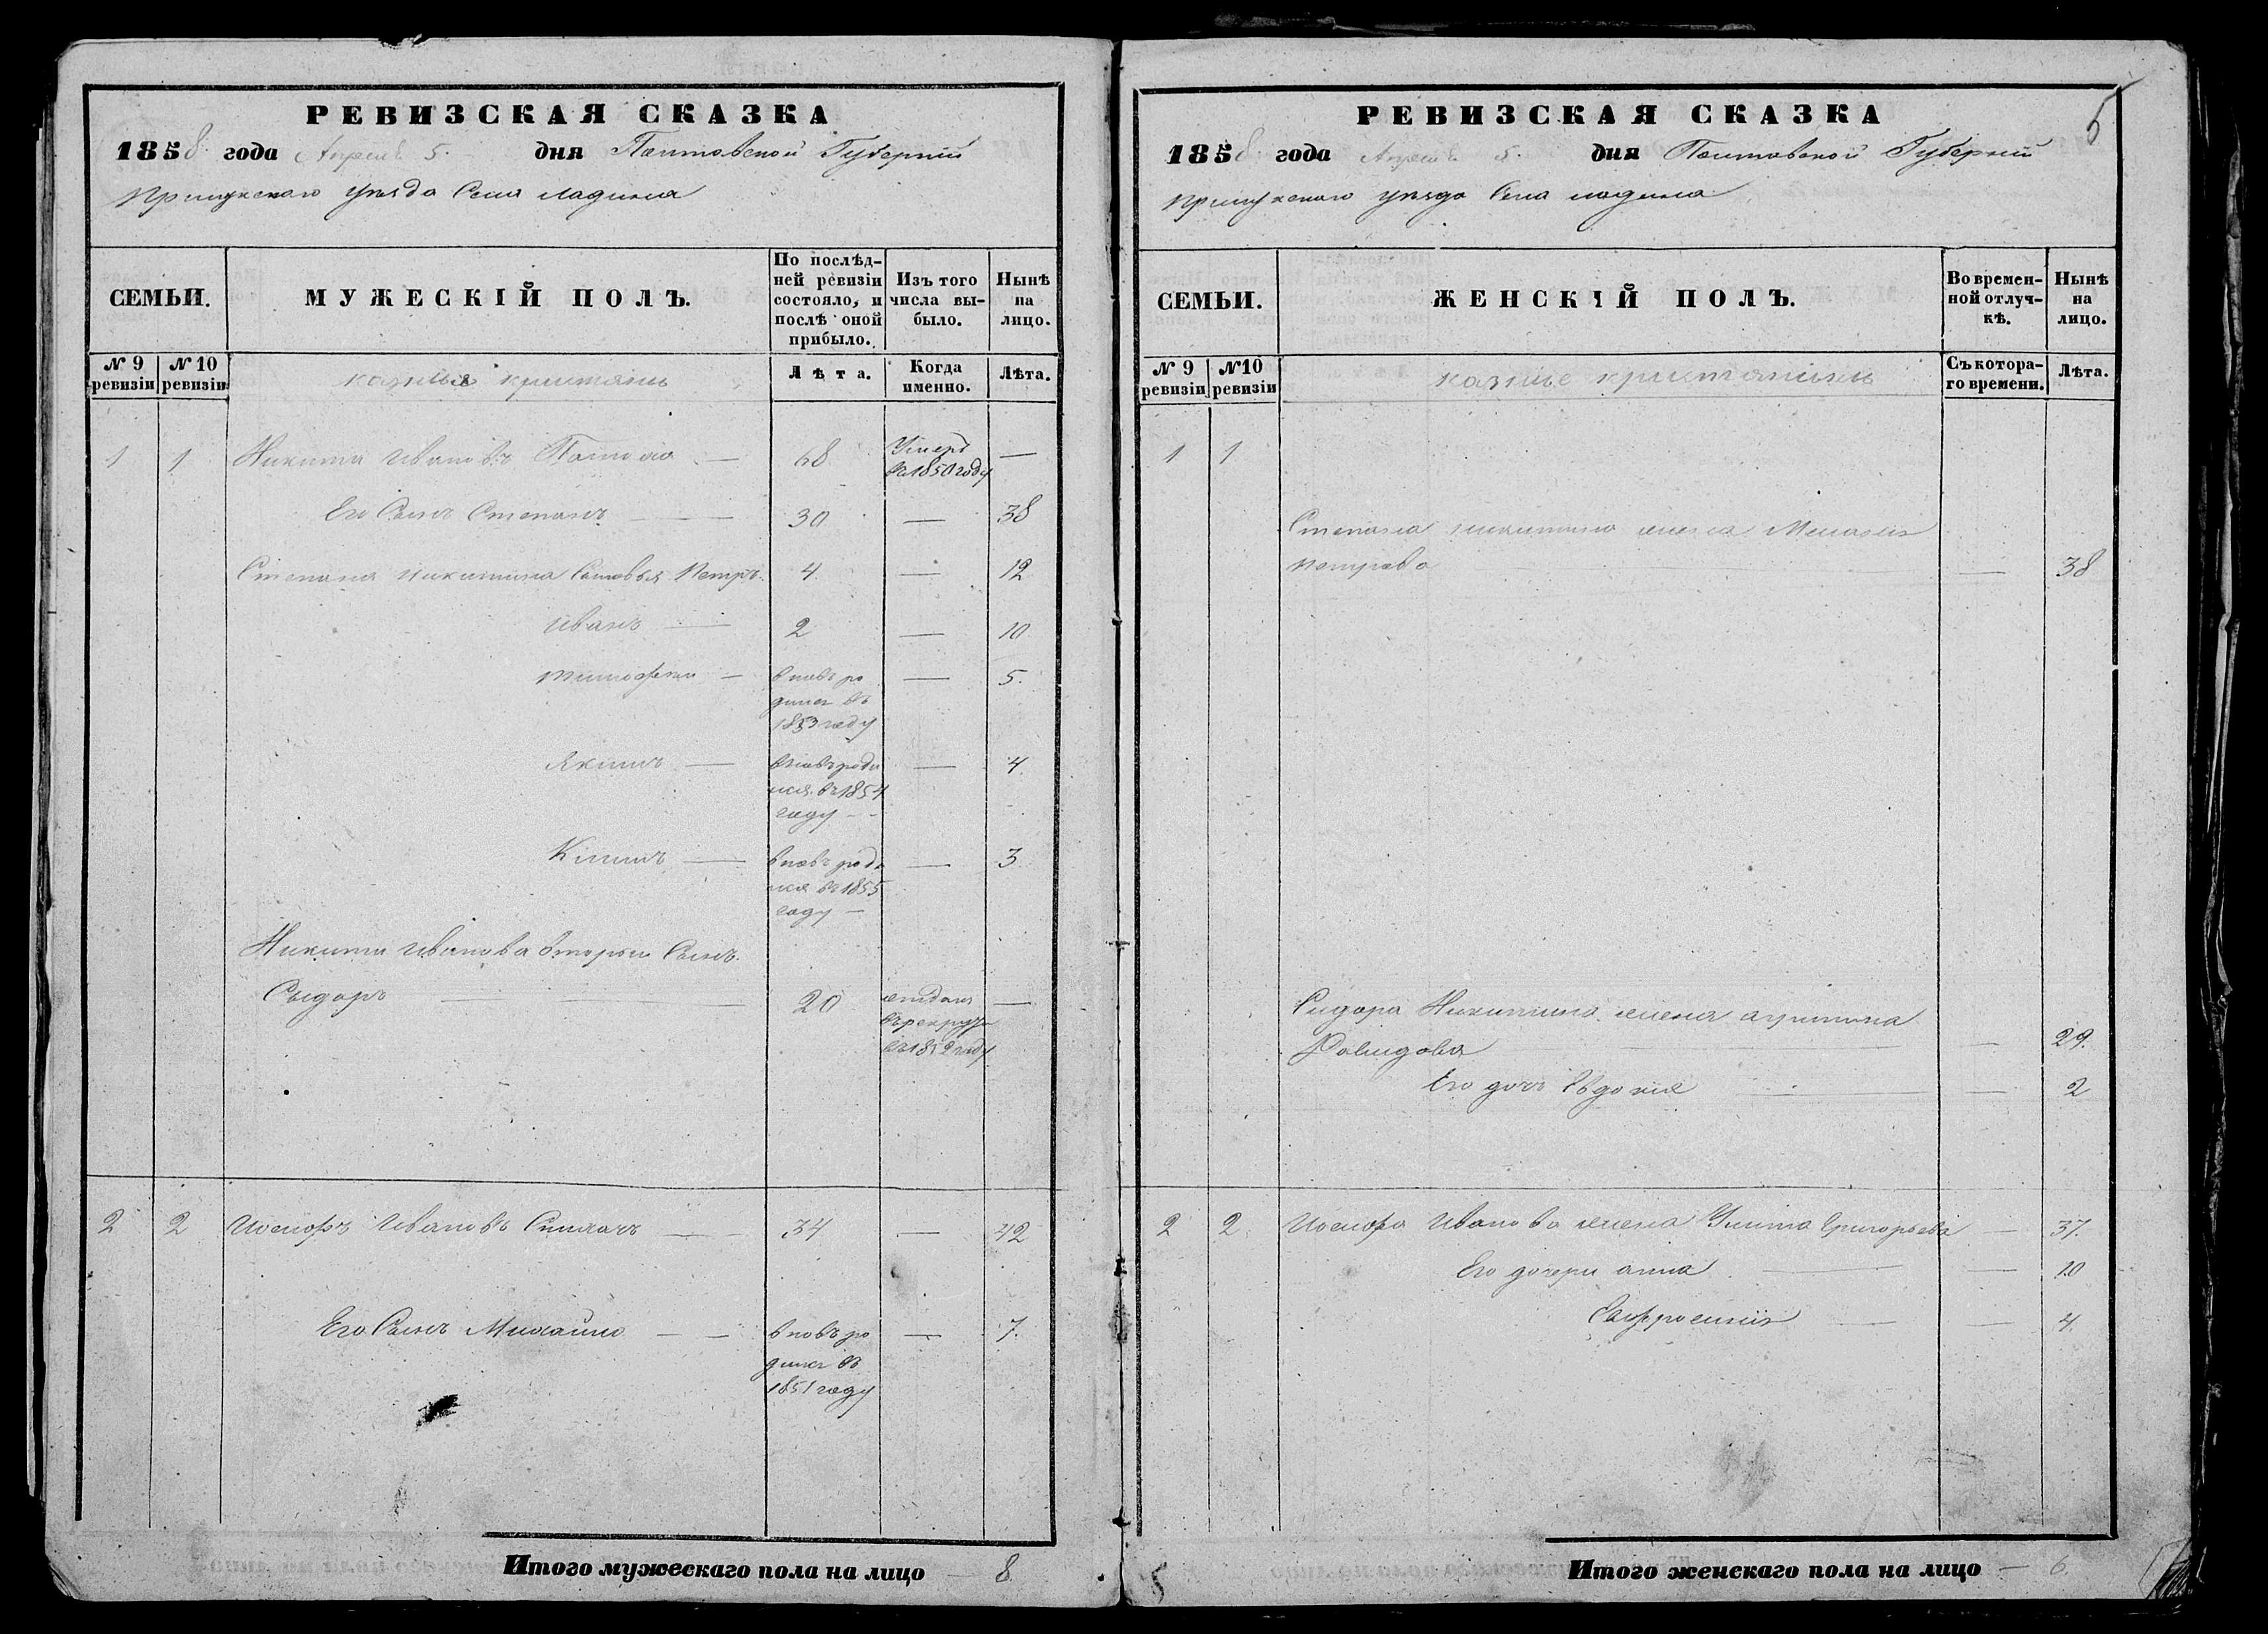 РЕВИЗСКАЯ СКАЗКА
1858 года Апреля 5. дня Полтавской Губерніи
Прилукскаго уѣзда Села Ладина
СЕМЬИ.
МУЖЕСКІЙ ПОЛЪ.
По послѣд-
ней ревизіи
состояло, и
послѣ оной
прибыло.
Изъ того
числа вы-
было.
Нынѣ
на
лицо.
№ 9
ревизіи
№ 10
ревизіи
Лѣта.
Когда
именно.
Лѣта.
1 1 Никита Ивановъ — 68 Умеръ —
въ 1850 году
Его Сынъ Степанъ — 30 — 38
Степана Никитина Сыновья Петръ. 4 — 12
Иванъ — 2 — 10
Тимофей — вновь ро — 5.
дился въ
1853 году
Якимъ — вновь роди — 4
лся въ 1854
году —
Климъ — вновь роди — 3
лся въ 1855
году —
Никиты Иванова вторый Сынъ
Сыдоръ — 20 отданъ —
въ рекруты
въ 1852 году
2 2 Иосифъ Ивановъ — 34 — 42
Его Сынъ Михайло — вновь ро — 7.
дился въ
1851 году
Итого мужескаго пола на лицо — 8
5
РЕВИЗСКАЯ СКАЗКА
1858 года Апреля 5. дня Полтавской Губерніи
Прилукскаго уѣзда Села Ладина
СЕМЬИ.
ЖЕНСКІЙ ПОЛЪ.
Во времен-
ной отлуч-
кѣ.
Нынѣ
на
лицо.
№ 9
ревизіи
№ 10
ревизіи
Съ котора-
го времени.
Лѣта.
1 1
Степана Никитина жена
Петрова — — 38
Сидора Никитина жена
Давидова — — 29.
Его дочь Евдокия — — 2
2 2 Иосифа Иванова жена Улита Григорьева — 37.
Его дочери Анна — — 10
Евфросинія — — 4.
Итого женскаго пола на лицо — 6.
5